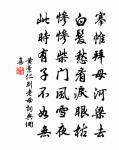 搴帷拜母河梁去
白髮愁看淚眼枯
慘慘柴門風雪夜
此時有子不如無
黃景仁別老母詩典硯
喜